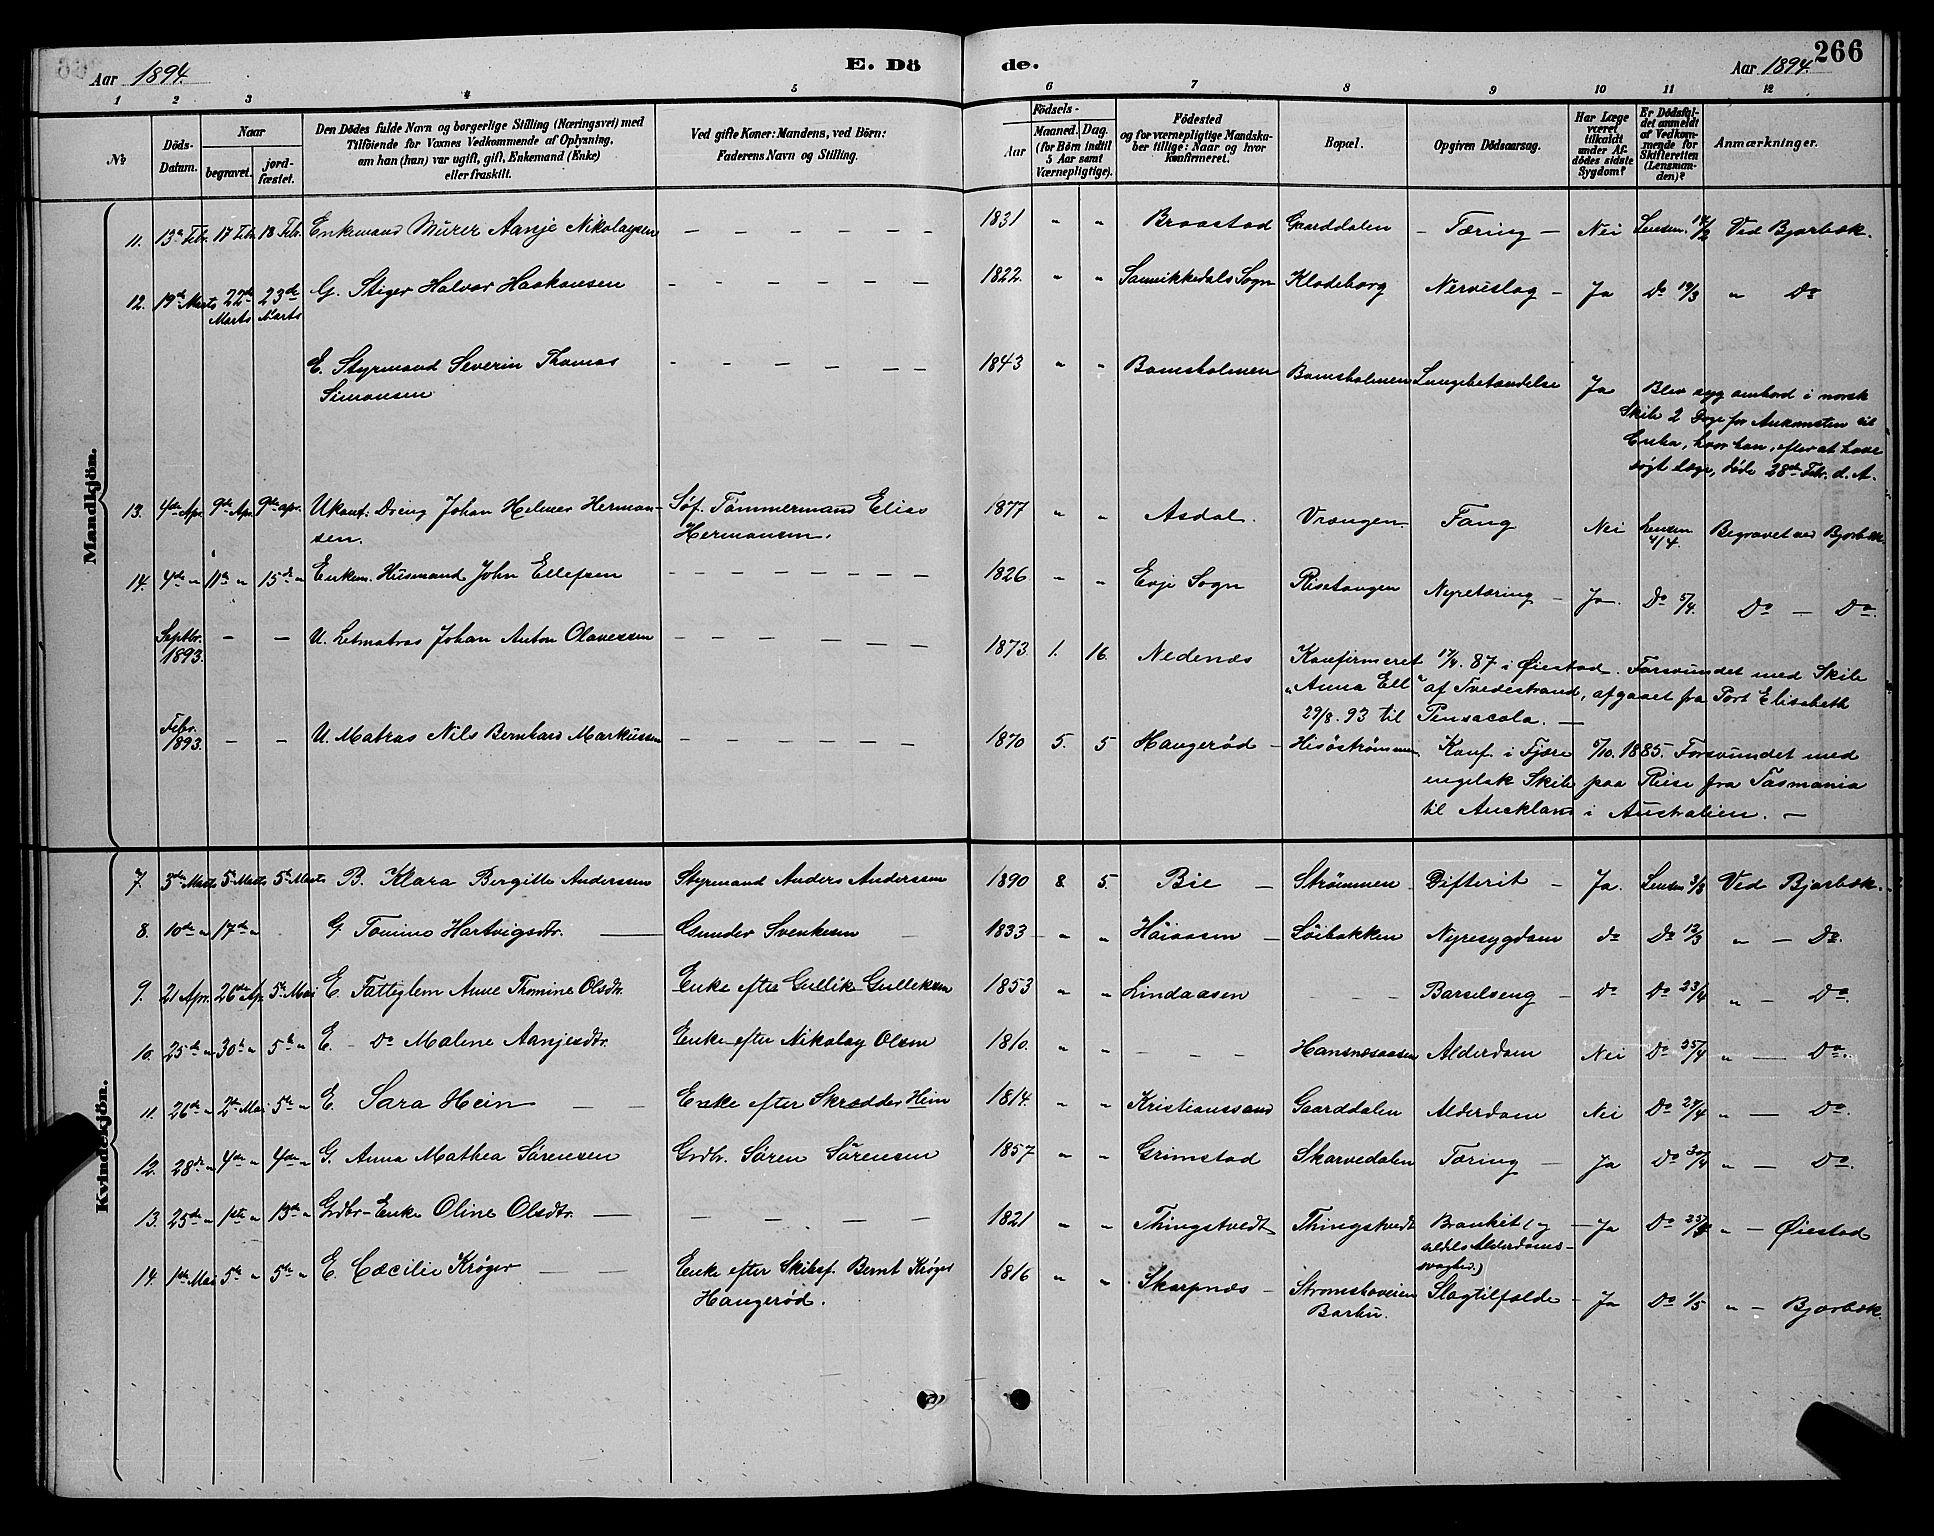 Aar 1894. E. Dö de. Aar 1894. 266
1 2 3 4 5 6 7 8 9 10 11 12
№
Döds-Datum.
Naar
begravet.
jord-fæstet.
Den Dödes fulde Navn og borgerlige Stilling (Næringsvei) med
Tilföiende for Voxnes Vedkommende af Oplysning,
om han (hun) var ugift, gift, Enkemand (Enke)
eller fraskilt.
Ved gifte Koner: Mandens, ved Börn:
Faderens Navn og Stilling.
Födsels-
Aar
Maaned. Dag.
(for Börn indtil
5 Aar samt
Værnepligtige).
Födested
og for værnepligtige Mandska-
ber tillige: Naar og hvor
Konfirmeret.
Bopæl.
Opgiven Dödsaarsag.
Har Læge
været
tilkaldt
under Af-
dödes sidste
Sygdom?
Er Dödsfal-
det anmeldt
af Vedkom-
mende for
Skifteretten
(Lensman-
den)?
Anmærkninger.
Mandkjön.
11. 13de Febr. 17 Febr. 18 Febr. Enkemand Murer Aanje Nikolaysen – – – – – – 1831 " " Braastad Gaarddalen – Tæring – Nei Lensm. Ved Bjorbæk.
12. 19de Marts 22de Marts 23de Marts G. Stiger Halvor Haakonsen – – – – – – 1822. " " Sannikkedals Sogn Klodeborg Nerveslag – Ja Do 19/3 " Do
E. Styrmand Severin Thomas – – – – – – 1843 " " Bomsholmen Bomsholmen Lungebetændelse Ja Blev syg ombord i norsk
Simonsen Skib 2 Dage før Ankomsten til
Cuba, hvor han, efter at have
søgt Læge, døde 28de Febr. d. A.
13. 4de Apr. 9de Apr. 9de apr. Ukonf: Dreng Johan Helmer Herman- Søf. Tömmermand Elias 1877 " " Asdal. Vrængen Fang Nei Lensm 4/4. Begravet ved Bjorbæk.
sen. Hermansen.
14. 4de " 11te " 15de " Enkem. Husmand John Ellefsen – – – – – – – – 1826 " " Evje Sogn Risetangen Nyretæring – Ja. Do 5/4. Do – Do.
Septbr. 1893. – – U. Letmatros Johan Anton Olavessen – – – – – – 1873 1. 16. Nedenæs Konfirmeret 87 i Øiestad. Forsvundet med Skib
"Anna Ell" af Tvedestrand, afgaaet fra Port Elisabeth
29/8. 93 til Pensacola. –
Febr. 1893. – – U. Matros Nils Bernhard Markussen – – – – – – 1870 5. 5 Haugerød – Hisøstrømmen Konf. i Fjære 1885. Forsvundet med
engelsk Skib paa Reise fra Tasmania
til Auckland i Australien. –
Kvindekjön.
7. 3de Marts 5te Marts 5te Marts B. Klara Bergitte Anderssen Styrmand Anders Anderssen 1890 8. 5. Bie – Strømmen – Difterit – Ja. Lensm 3/3 Ved Bjorbæk.
8. 10de " 17de " G. Tomine Hartvigsdtr. — Gunder Svenkesen – 1833 – " " Håiaasen – Løibakken Nyresygdom do Do 12/3 " – Do.
9. 21 Apr. 26de Ap. 5te Mai E. Fattiglem Anne Thomine Olsdtr. Enke efter Gullik Gulleksen 1853 " " Lindaasen – – – Barselseng – Do Do 23/4 " – Do.
10. 25de " 30te " 5te " E. – Do Malene Aanjesdtr. Enke efter Nikolay Olsen 1810. " " – – – Hansnesaasen Alderdom Nei Do 25/4 " – Do.
11. 26de " 2den Mai 5te " E. Sara Hein – – Enke efter Skrædder Hein 1814. " " Kristianssand Gaarddalen Alderdom Nei Do 27/4 " – Do.
12. 28de " 4de " 4de " G. Anna Mathea Sørensen Grdbr. Søren Sørensen 1857 " " Grimstad Skarvedalen Tæring – Ja Do 30/4 " – Do.
13. 25de " 1ste " 13de " Grdbr-Enke Oline Olsdtr. — – – – – 1821 " " Thingstvedt Thingstvedt Bronkit (og – Ja Do " – Øiestad
ældes Alderdoms-
svaghed.)
14. 1ste Mai 5te " 5te " E. Cæcilie Krøger – – Enke efter Skibsf. Bernt Krøger 1816 " " Skarpnæs – Stromsboveien Slagtilfælde – Ja Do 1/5 " – Bjorbæk.
Haugerød. Barbu.